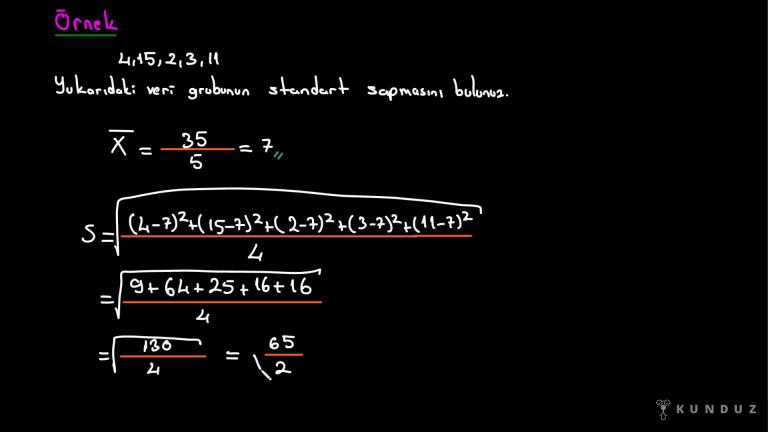 Örnek
4,15,2,3,11
Yukarıdaki veri grubunun standart sapmasını bulunuz.
X̄ = 35/5 = 7
S = √((4-7)²+(15-7)²+(2-7)²+(3-7)²+(11-7)²/4)
= √(9+64+25+16+16/4)
= √(130/4) = √(65/2)
KUNDUZ